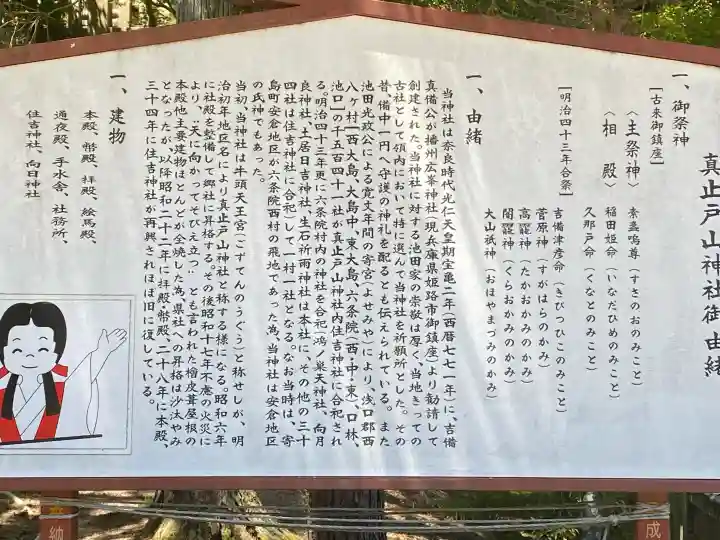 真止戸山神社御由緒
一、御祭神
[古来御鎮座]
〈主祭神〉 素盞嗚尊(すさのおのみこと)
〈相殿〉 稲田姫命(いなだひめのみこと)
久那戸命(くなとのみこと)
[明治四十三年合祭]
吉備津彦命(きびつひこのみこと)
菅原神(すがはらのかみ)
高龗神(たかおかみのかみ)
闇龗神(くらおかみのかみ)
大山祇神(おほやまづみのかみ)
一、由緒
当神社は奈良時代光仁天皇期宝亀二年(西暦七七一年)に、吉備
真備公が播州広峯神社(現兵庫県姫路市御鎮座)より勧請して
創建された。当神社に対する池田家の崇敬は厚く、当地きっての
古社として領内において特に選んで当神社を祈願所とした。その
昔、備中一円へ守護の神札を配るとも伝えられている。また
池田光政公による寛文年間の寄宮(よせみや)により、浅口郡西
八ヶ村[西大島、大島中、東大島、六条院(西・中・東)、口林、
池口]の千五百四十一社が真止戸山神社内住吉神社に合祀され
る。明治四十三年更に六条院村内の神社を合祀(鴻ノ巣天神社、向月
良神社、土居日吉神社、生石祈雨神社は本社に、その他の三十
四社は住吉神社に合祀)して一村一社となる。なお当時は、寄
島町安倉地区が六条院西村の飛地であった為、当神社は安倉地区
の氏神でもあった。
当初、当神社は牛頭天王宮(ごずてんのうぐう)と称せしが、明
治初年地区名により真止戸山神社と称する様になる。昭和六年
に社殿を整備して郷社に昇格する。その後昭和十七年不慮の火災に
より、「天に向かってそびえ立つ」とも言われた檜皮葺屋根の
本殿他主要建物ほとんどが全焼した為、県社への昇格は沙汰やみ
となったが、以降昭和二十二年に拝殿・幣殿、二十八年に本殿、
三十四年に住吉神社が再興されほぼ旧に復している。
一、建物
本殿、幣殿、拝殿、絵馬殿、
通夜殿、手水舎、社務所、
住吉神社、向日神社
納
成